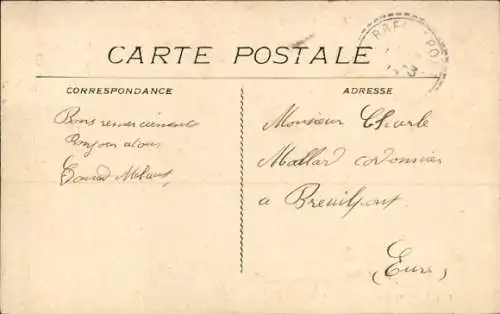 CARTE POSTALE
CORRESPONDANCE
Bons remerciements
Bonjour a tous
ADRESSE
Monsieur Charle
Mallard cordonnier
a Breuilpont
(Eure)